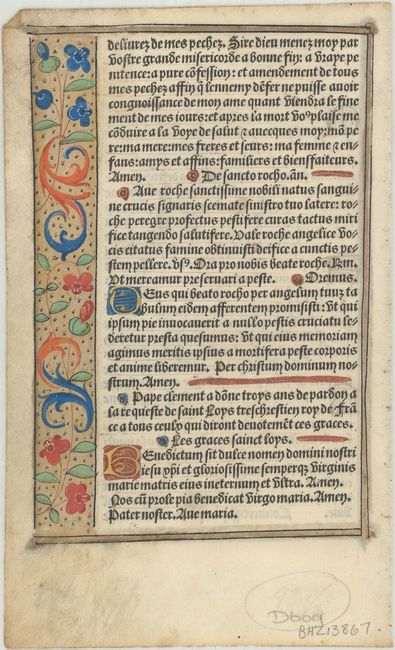 deliurez de mes pechez. Sire dieu menez moy par
vostre grande misericorde a bonne fin: a vraye pe
nitence: a pure cōfession: et amendement de tous
mes pechez affin q̄ lennemy dēfer ne puisse auoir
congnoissance de mon ame quant viendra le fine
ment de mes iours: et apres la mort vo⁹ plaise me
cōduire a la voye de salut ⁊ auecques moy: mō pe
re: ma mere: mes freres et seurs: ma femme ⁊ en
fans: amys et affins: familiers et biensfaiteurs.
Amen. De sancto rocho. añ.
Aue roche sanctissime nobili natus sangui
ne crucis signaris scemate sinistro tuo latere: ro
che peregre profectus pestifere curas tactus miri
fice tangendo salutifere. Vale roche angelice vo
cis citatus famine obtinuisti deifice a cunctis pe
stem pellere. vs⁹. Ora pro nobis beate roche.
Vt mereamur preseruari a peste. Oremus.
Deus qui beato rocho per angelum tuuz ta
bulam eidem afferentem promisisti: vt qui
ipsum pie inuocauerit a nullo pestis cruciatu le-
deretur presta quesumus: vt qui eius memoriam
agimus meritis ipsius a mortifera peste corporis
et anime liberemur. Per christum dominum no-
strum. Amen.
Pape clement a dōne troys ans de pardon a
la requeste de saint Loys treschrestien roy de Frā
ce a tous ceulx qui diront deuotemēt ces graces.
Les graces sainct loys.
Benedictum sit dulce nomen domini nostri
iesu xp̄i et gloriosissime semperq̄ virginis
marie matris eius ineternum et vltra. Amen.
Nos cū prole pia benedicat virgo maria. Amen.
Pater noster. Aue maria.
BHZ13867.